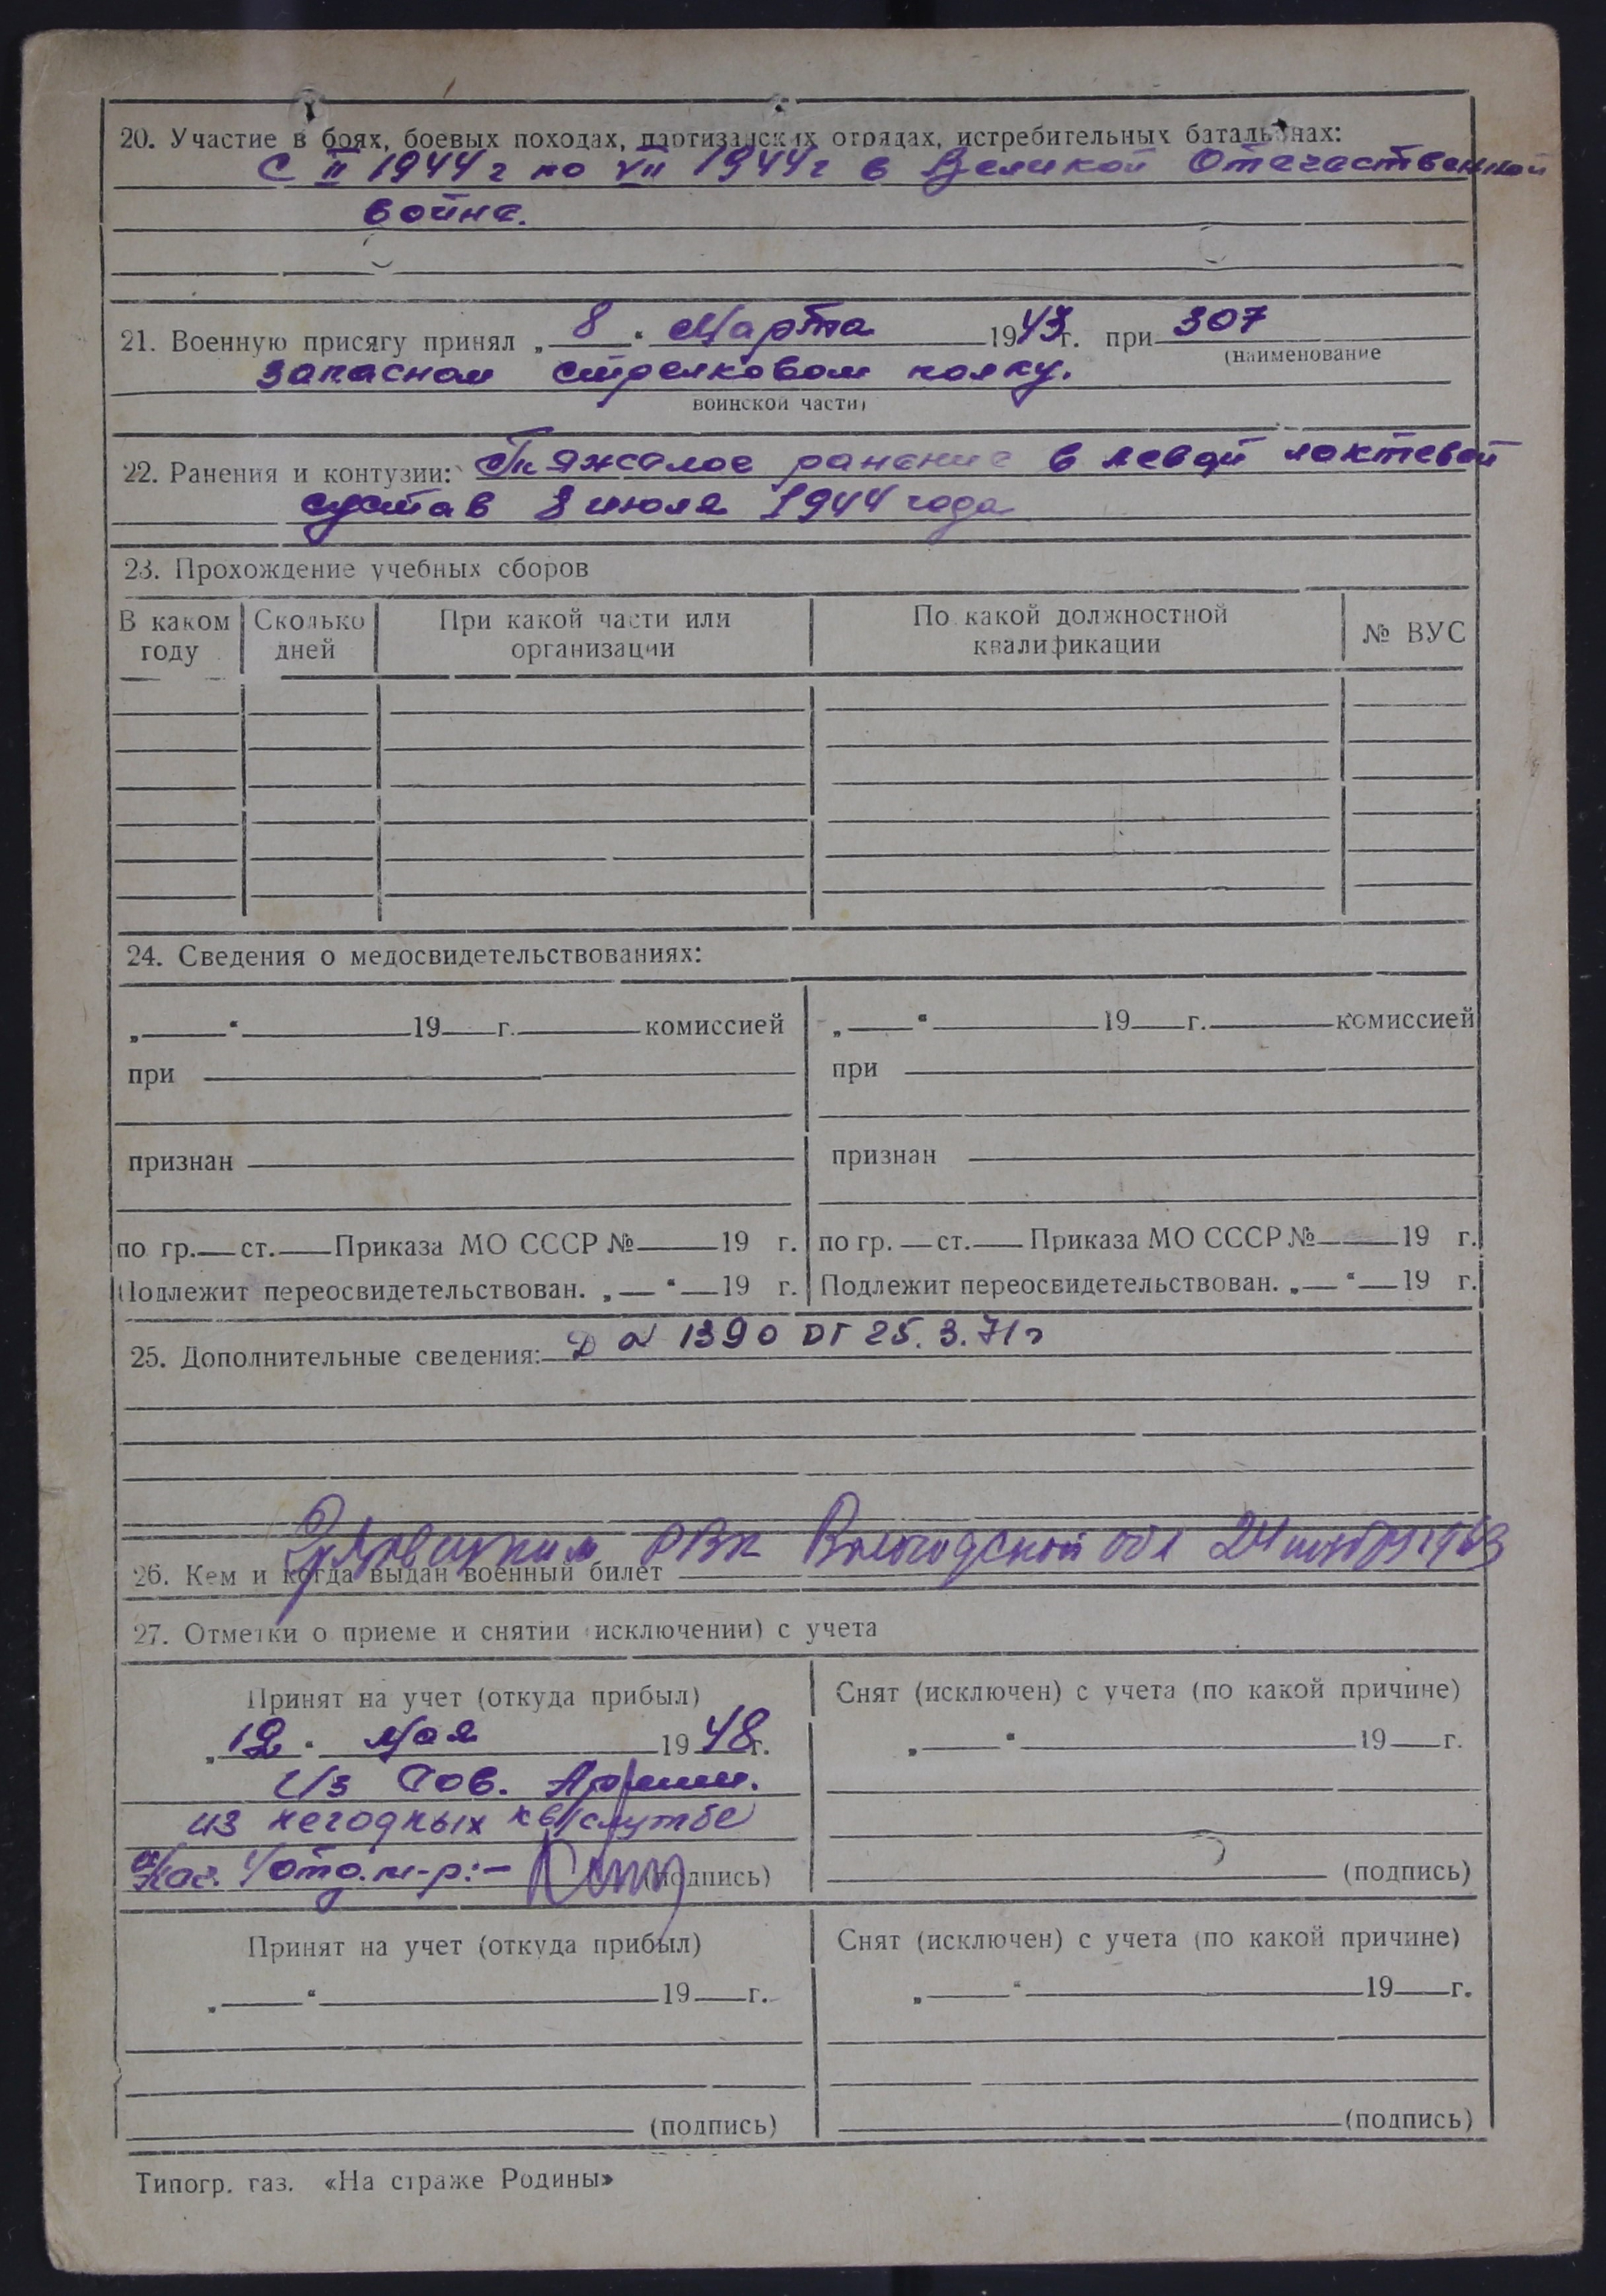 20. Участие в боях, боевых походах, партизанских отрядах, истребительных батальонах:
С II 1944 г по VII 1944 г в Великой Отечественной
войне.
21. Военную присягу принял „ 8 “ Марта 1943 г. при 307
(наименование
запасном стрелковом полку.
воинской части)
22. Ранения и контузии: Тяжелое ранение в левой локтевой
сустав 8 июля 1944 года
23. Прохождение учебных сборов
В каком году Сколько дней При какой части или организации По какой должностной квалификации № ВУС
24. Сведения о медосвидетельствованиях:
„ “ 19 г. комиссией „ “ 19 г. комиссией
при при
признан признан
по гр. ст. Приказа МО СССР № 19 г. по гр. ст. Приказа МО СССР № 19 г.
Подлежит переосвидетельствован. „ “ 19 г. Подлежит переосвидетельствован. „ “ 19 г.
25. Дополнительные сведения: Д № 1390 от 25.3.71 г
РВК Вологодской обл 24
26. Кем и когда выдан военный билет
27. Отметки о приеме и снятии (исключении) с учета
Принят на учет (откуда прибыл) Снят (исключен) с учета (по какой причине)
„ 12 “ мая 1948 г. „ “ 19 г.
Из Сов. Армии.
из негодных к в/службе
Нач. 1/отд. м-р:- (подпись) (подпись)
Принят на учет (откуда прибыл) Снят (исключен) с учета (по какой причине)
„ “ 19 г. „ “ 19 г.
(подпись) (подпись)
Типогр. газ. «На страже Родины»